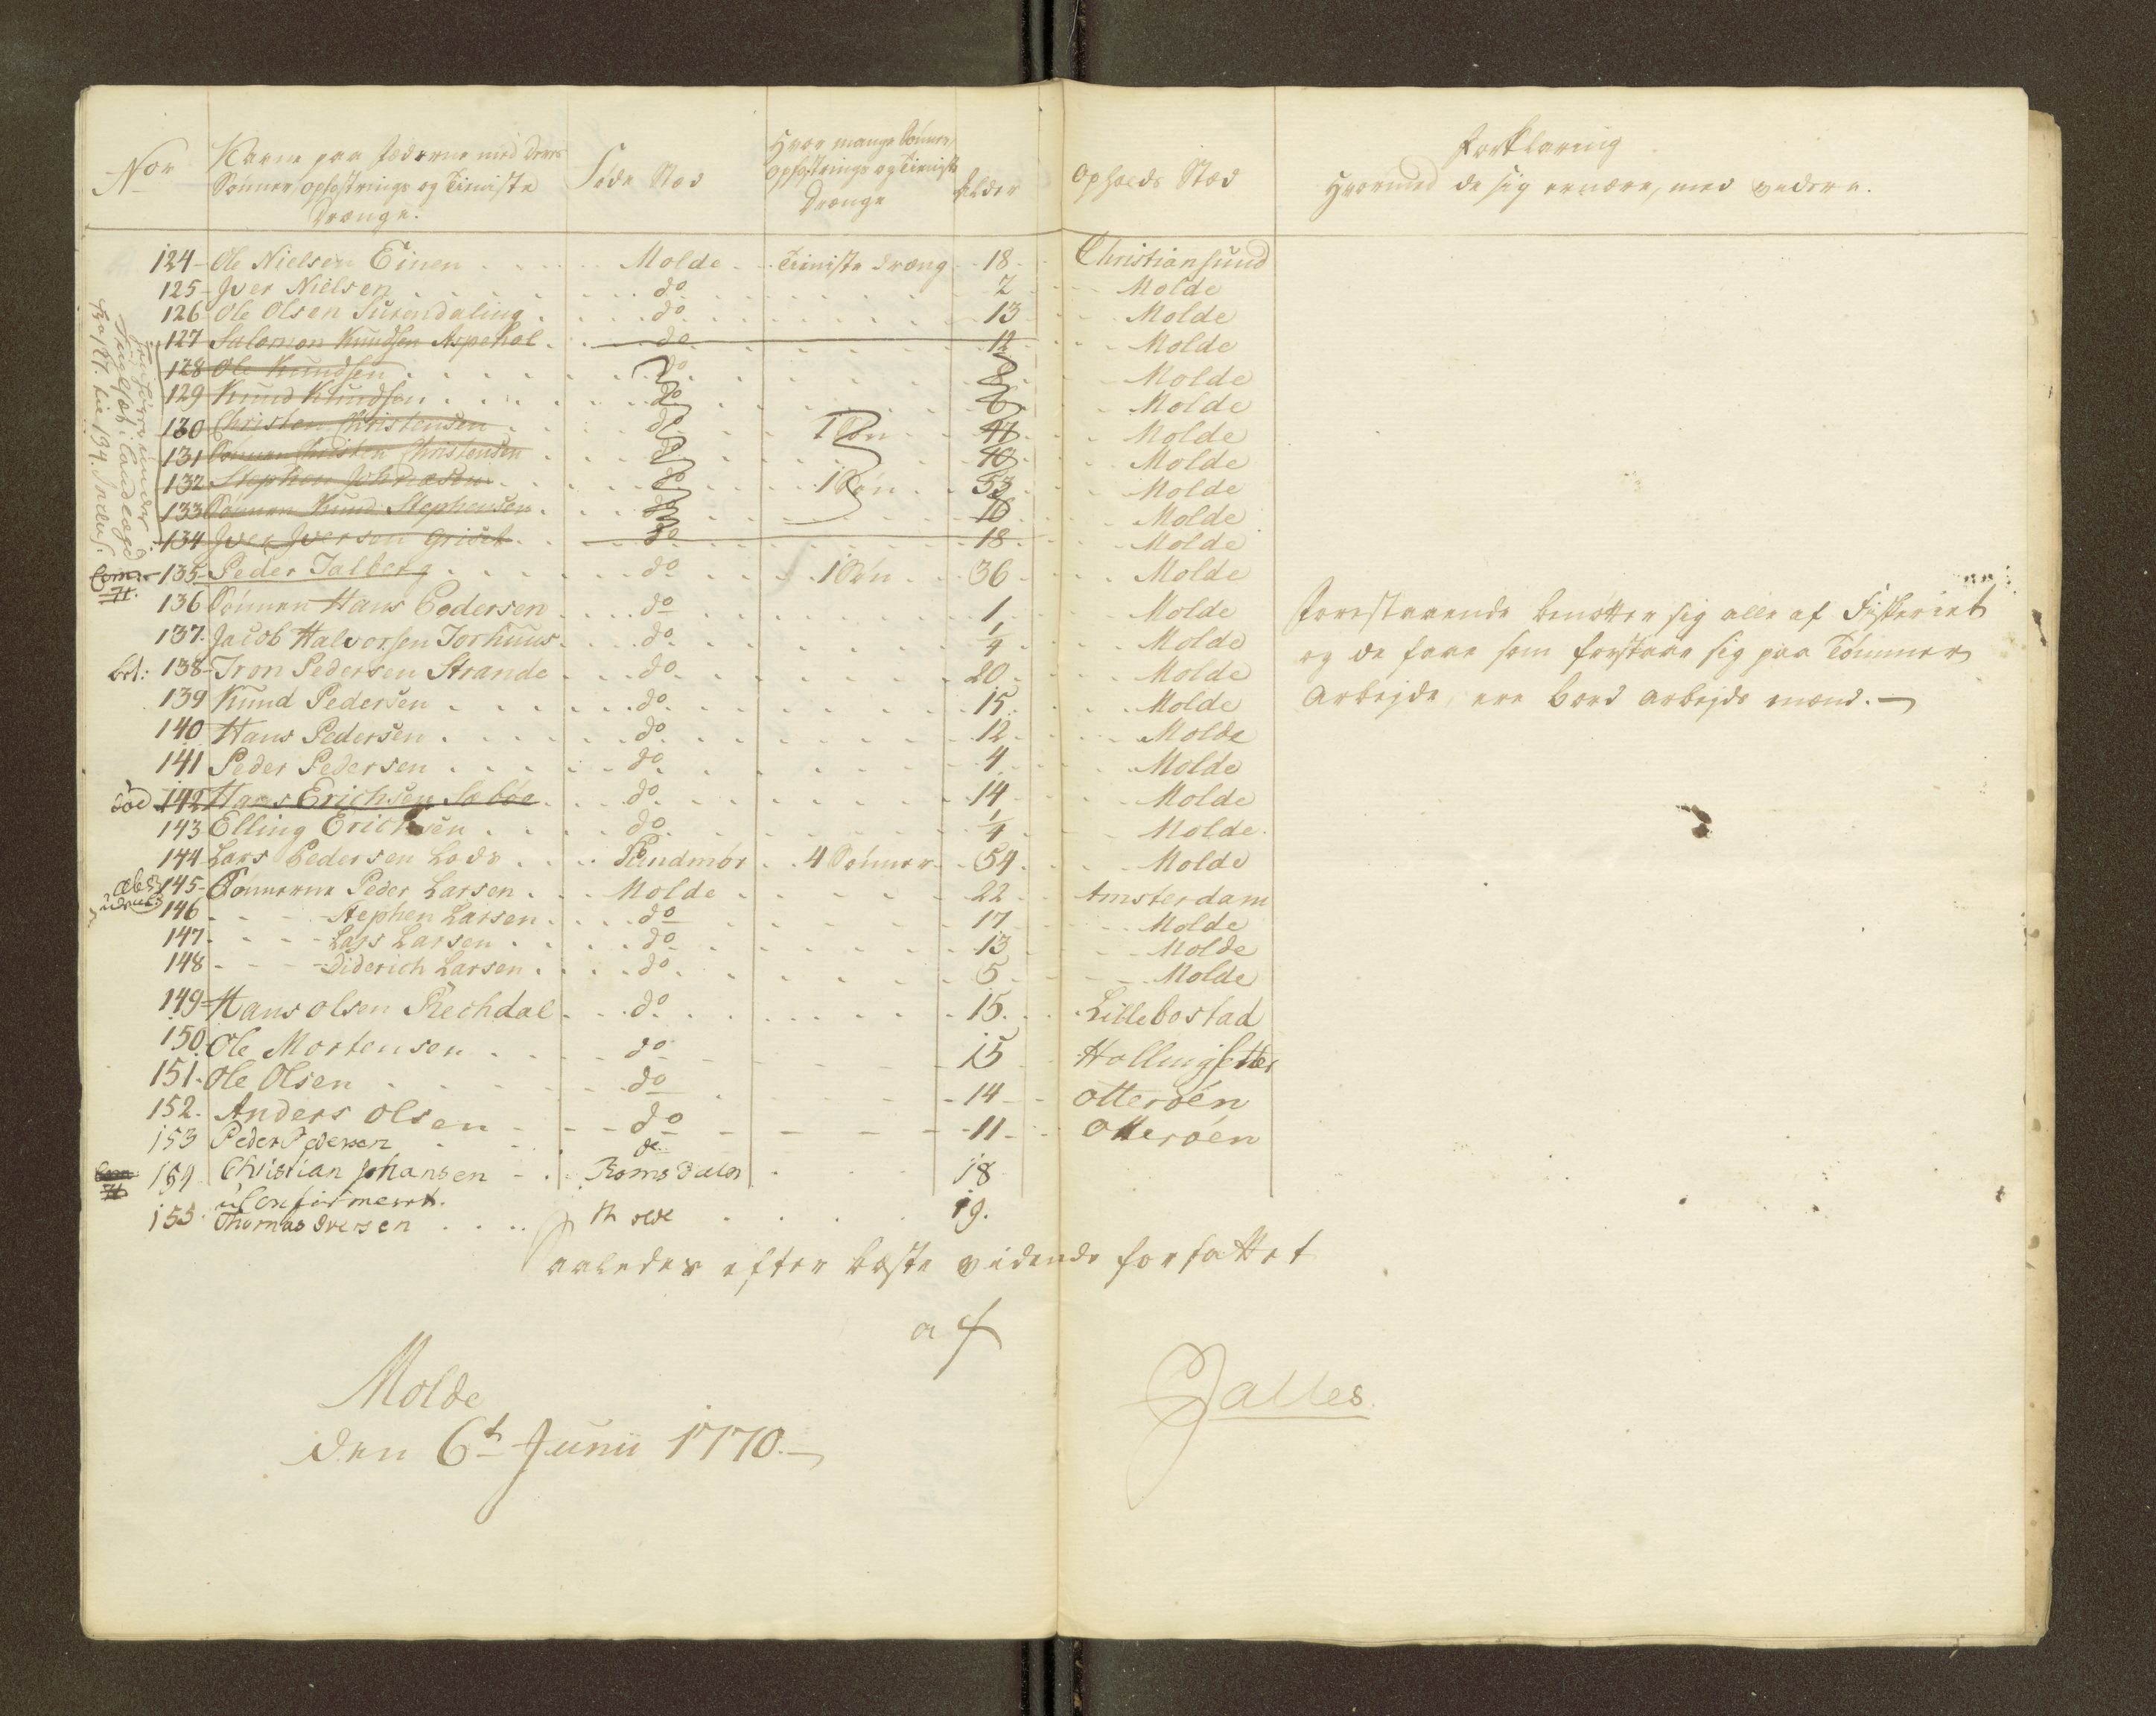 Nor
Navne paa Fæderne med deres
Sønner, opfostrings og Tieniste
Drænge.
Føde Stæd
Hvor mange Sønner
opfostrings og Tieniste
Drænge
Alder
Opholds Stæd
Forklaring
Hvormed de sig ernære, med videre.
124 Ole Nielsen Einen Molde Tieniste dræng 18 Christiansund
125 Iver Nielsen do 2 Molde
126 Ole Olsen Surendaling do 13 Molde
127 Salomon Knudsen Aspehol do 12 Molde
128 Ole Knudsen do 8 Molde
129 Knud Knudsen do 6 Molde
130 Christen Christensen do 1 Søn 47 Molde
131 Sønnen Christen Christensen do 10 Molde
132 Stephen Johnæsen do 1 Søn 53 Molde
133 Sønnen Knud Stephensen do 16 Molde
134 Iver Iversen Griset do 18 Molde
fra 127. til 134. inclus.
135 Peder Talberg do 1 Søn 36 Molde
136 Sønnen Hans Pedersen do 1 Molde
137. Jacob Halvorsen Torhuus do 1/4 Molde
138 Tron Pedersen Strande do 20 Molde
139 Knud Pedersen do 15 Molde
140 Hans Pedersen do 12 Molde
141 Peder Pedersen do 4 Molde
død 142 Hans Erichsen Sæbøe do 14 Molde
143 Elling Erichsen do 1/4 Molde
144 Lars Pedersen Lods Sundmør 4 Sønner 54 Molde
145 Sønnerne Peder Larsen Molde 22 Amsterdam
146 - - - Stephen Larsen do 17 Molde
147 - - - Lars Larsen do 13 Molde
148 - - - Diderich Larsen do 5 Molde
149 Hans Olsen Rechdal do 15 Lillebostad
150 Ole Mortensen do 15 Hollingsetter
151. Ole Olsen do 14 Otterøen
152. Anders Olsen do 11 Otterøen
153 Peder Pedersen do
154 Christian Johansen Romsdalen 18
uConfirmeret.
155 Thomas Iversen Molde 19.
Forestaaende benøtter sig alle af Fiskeriet
og de faae som forstaae sig paa Tømmer
Arbejde, ere bord arbejds mænd.
Saaledes efter beste vidende forfattet
af
Molde
den 6t Junii 1770.
Jalles.